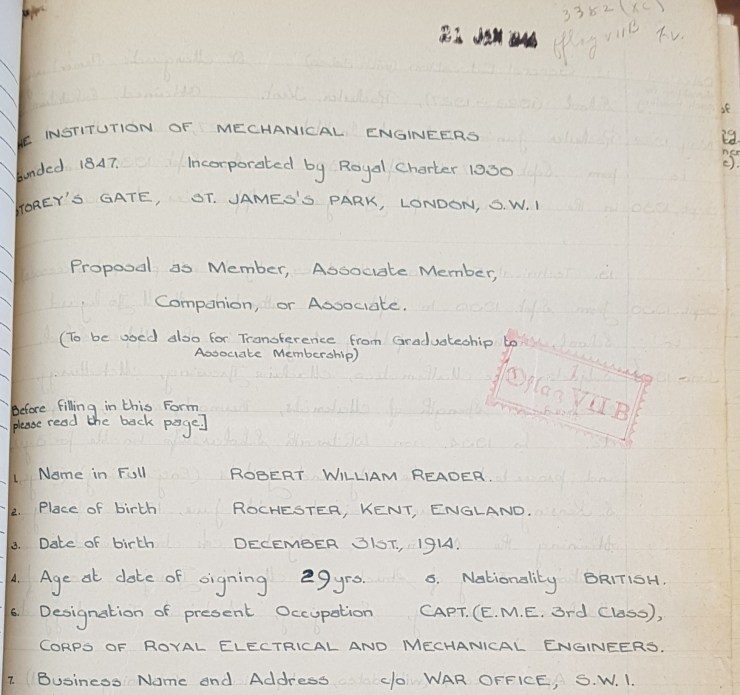 3382 (XC)
21 JAN
Oflag VIIB
THE INSTITUTION OF MECHANICAL ENGINEERS
ounded 1847. Incorporated by Royal Charter 1930
STOREY'S GATE, ST. JAMES'S PARK, LONDON, S.W.1
Proposal as Member, Associate Member,
Companion, or Associate.
(To be used also for Transference from Graduateship to
Associate Membership)
Oflag VII B
Before filling in this Form
please read the back page.]
1. Name in Full ROBERT WILLIAM READER.
2. Place of birth ROCHESTER, KENT, ENGLAND.
3. Date of birth DECEMBER 31ST., 1914.
4. Age at date of signing 29 yrs. 5. Nationality BRITISH.
6. Designation of present Occupation CAPT. (E.M.E. 3rd Class),
CORPS OF ROYAL ELECTRICAL AND MECHANICAL ENGINEERS.
7. Business Name and Address c/o WAR OFFICE, S.W.1.